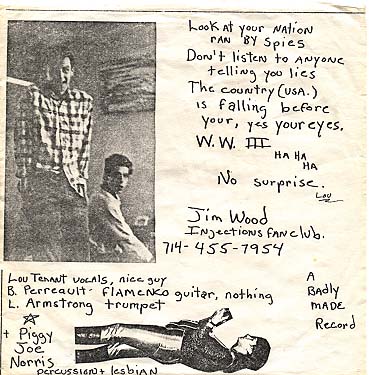 Look at your Nation
ran by spies
Don't listen to anyone
telling you lies
The country (USA.)
is falling before
your, yes your eyes.
W.W. III
HA HA
HA
No surprise.
Lou
Jim Wood
Injections fanclub.
714-455-7954
Lou Tenant vocals, nice guy
B. Perreault - Flamenco guitar, nothing
L. Armstrong trumpet
+ Piggy
Joe
Norris
percussion + lesbian
A
Badly
Made
Record